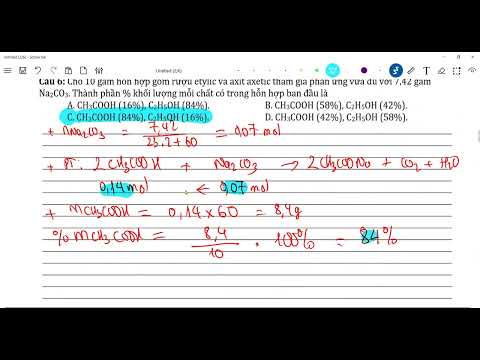 Câu 6: Cho 10 gam hỗn hợp gồm rượu etylic và axit axetic tham gia phản ứng vừa đủ với 7,42 gam
Na₂CO₃. Thành phần % khối lượng mỗi chất có trong hỗn hợp ban đầu là
A. CH₃COOH (16%), C₂H₅OH (84%). B. CH₃COOH (58%), C₂H₅OH (42%).
C. CH₃COOH (84%), C₂H₅OH (16%). D. CH₃COOH (42%), C₂H₅OH (58%).
+ nNa₂CO₃ = 7,42 / 23.2+60 = 0,07 mol
+ PT: 2CH₃COOH + Na₂CO₃ → 2CH₃COONa + CO₂ + H₂O
0,14 mol ← 0,07 mol
+ mCH₃COOH = 0,14 x 60 = 8,4g
%mCH₃COOH = 8,4 / 10 . 100% = 84%